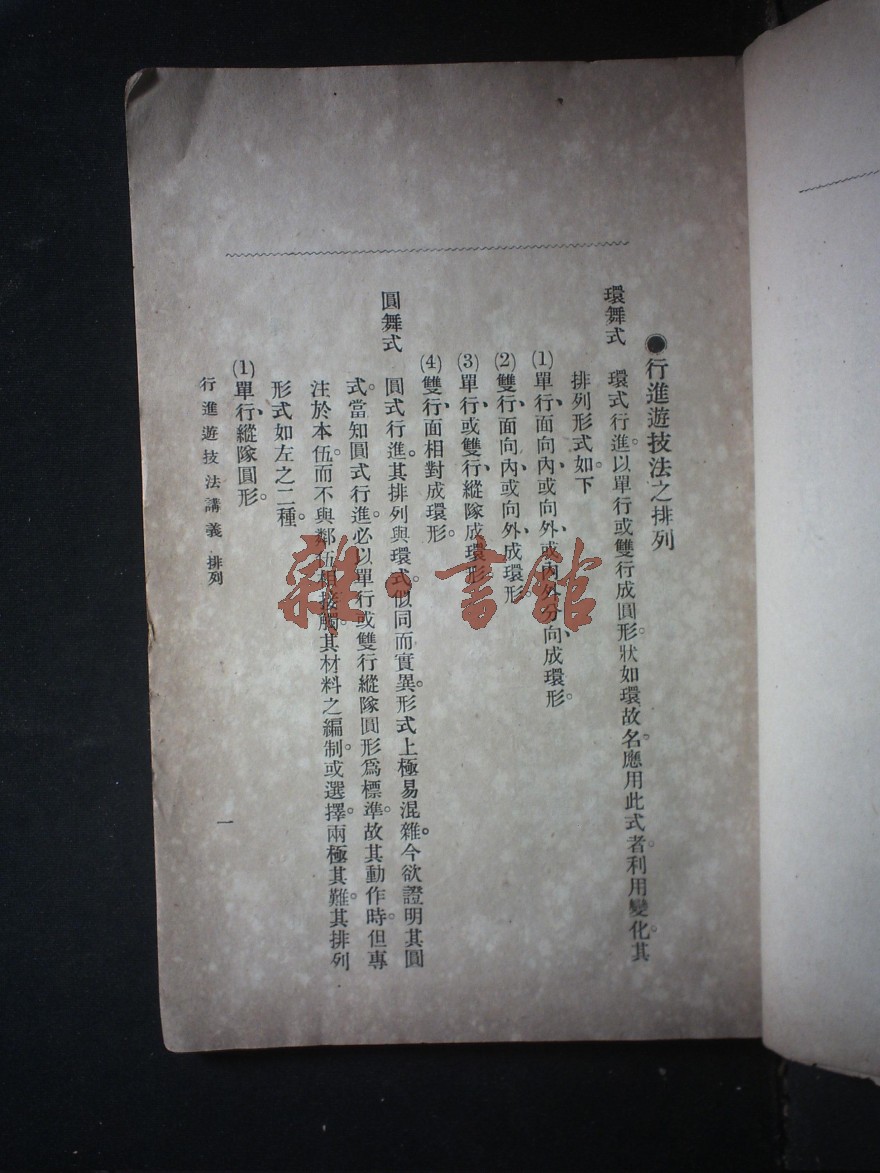 ●行進遊技法之排列
環舞式 環式行進。以單行或雙行成圓形。狀如環故名。應用此式者。利用變化。其
排列形式如下
(1)單行、面向內、或向外、或內外分向、成環形。
(2)雙行、面向內、或向外、成環形。
(3)單行、或雙行、縱隊成環形。
(4)雙行、面相對成環形。
圓舞式 圓式行進。其排列與環式。似同而實異。形式上極易混雜。今欲證明其圓
式。當知圓式行進。必以單行或雙行縱隊圓形爲標準。故其動作時。但專
注於本伍。而不與鄰伍相接觸。其材料之編制。或選擇兩極其難。其排列
形式如左之二種。
(1)單行、縱隊圓形。
行進遊技法講義 排列
一
雜·書館